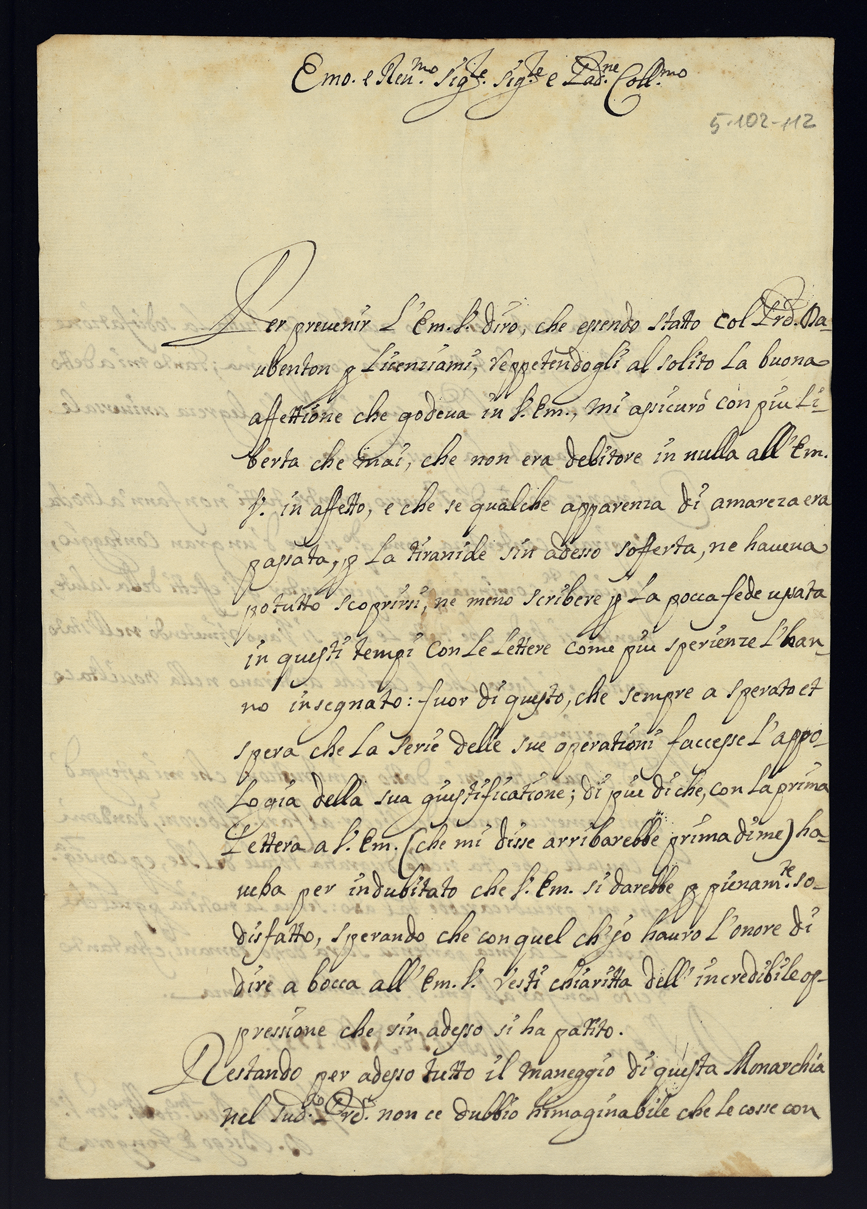 Emo. e Reu.mo Sig.re Sig.re e Pad.ne Coll.mo
5-102-112
Per preuenir L'Em. S. diro, che essendo statto col Prd. Da-
ubenton p Licenziami, reppetendogli al solito La buona
affettione che godeua in S. Em., mi assicurò con piu Li-
berta che mai, che non era debitore in nulla all'Em.
S. in affetto, e che se qualche apparenza di amareza era
passata, p La tiranide sin adesso sofferta, ne haueua
potutto scoprirsi, ne meno scribere p La pocca fede usata
in questi tempi con Le Lettere come piu sperienze L'han-
no insegnato: fuor di questo, che sempre a sperato et
spera che La serie delle sue operationi faccesse L'appo-
Logia della sua giustificatione; di piu di che, con La prima
Lettera a S. Em. (che mi disse arribarebbe prima di me) ha-
ueba per indubitato che S. Em. si darebbe p pienam.te so-
disfatto, sperando che con quel ch'jo hauro L'onore di
dire a bocca all'Em. S. resti chiaritta dell'incredibile op-
pressione che sin adesso si ha patito.
Restando per adesso tutto il maneggio di questa Monarchia
nel Sud.o Prd. non ce dubbio himaginabile che Le cosse con